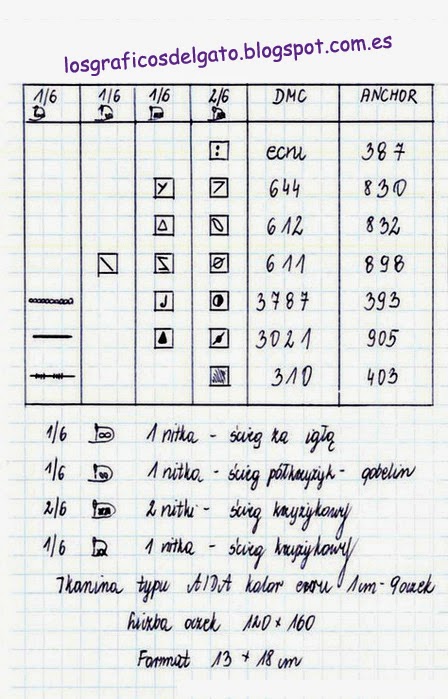 losgraficosdelgato.blogspot.com.es
1/6 1/6 1/6 2/6 DMC ANCHOR
ecru 387
644 830
612 832
611 898
3787 393
3021 905
310 403
1/6 1 nitka - ścieg za igłą
1/6 1 nitka - ścieg półkrzyżyk - gobelin
2/6 2 nitki - ścieg krzyżykowy
1/6 1 nitka - ścieg krzyżykowy
Tkanina typu AIDA kolor ecru 1cm - 9 oczek
liczba oczek 120 x 160
Format 13 x 18 cm